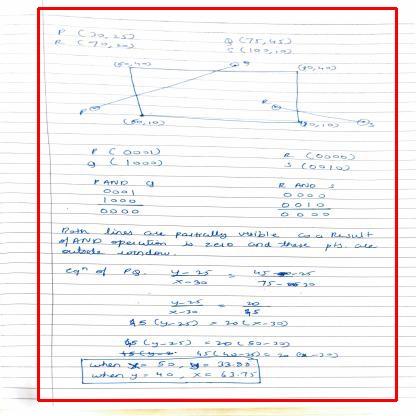 P (30,25) Q (75,45)
R (70,20) S (100,10)
(50,40) Q (80,40)
P R S
(50,10) (80,10)
P (0001) R (0000)
Q (1000) S (0010)
P AND Q R AND S
0001 0000
1000 0010
0000 0000
Both lines are partially visible as a Result
of AND operation is zero and these pts. are
outside window.
eqn of PQ. y-25 / x-30 = 45-25 / 75-30
y-25 / x-30 = 20 / 45
45 (y-25) = 20 (x-30)
45 (y-25) = 20 (50-30)
45 (40-25) = 20 (x-30)
when x = 50, y = 33.88
when y = 40, x = 63.75